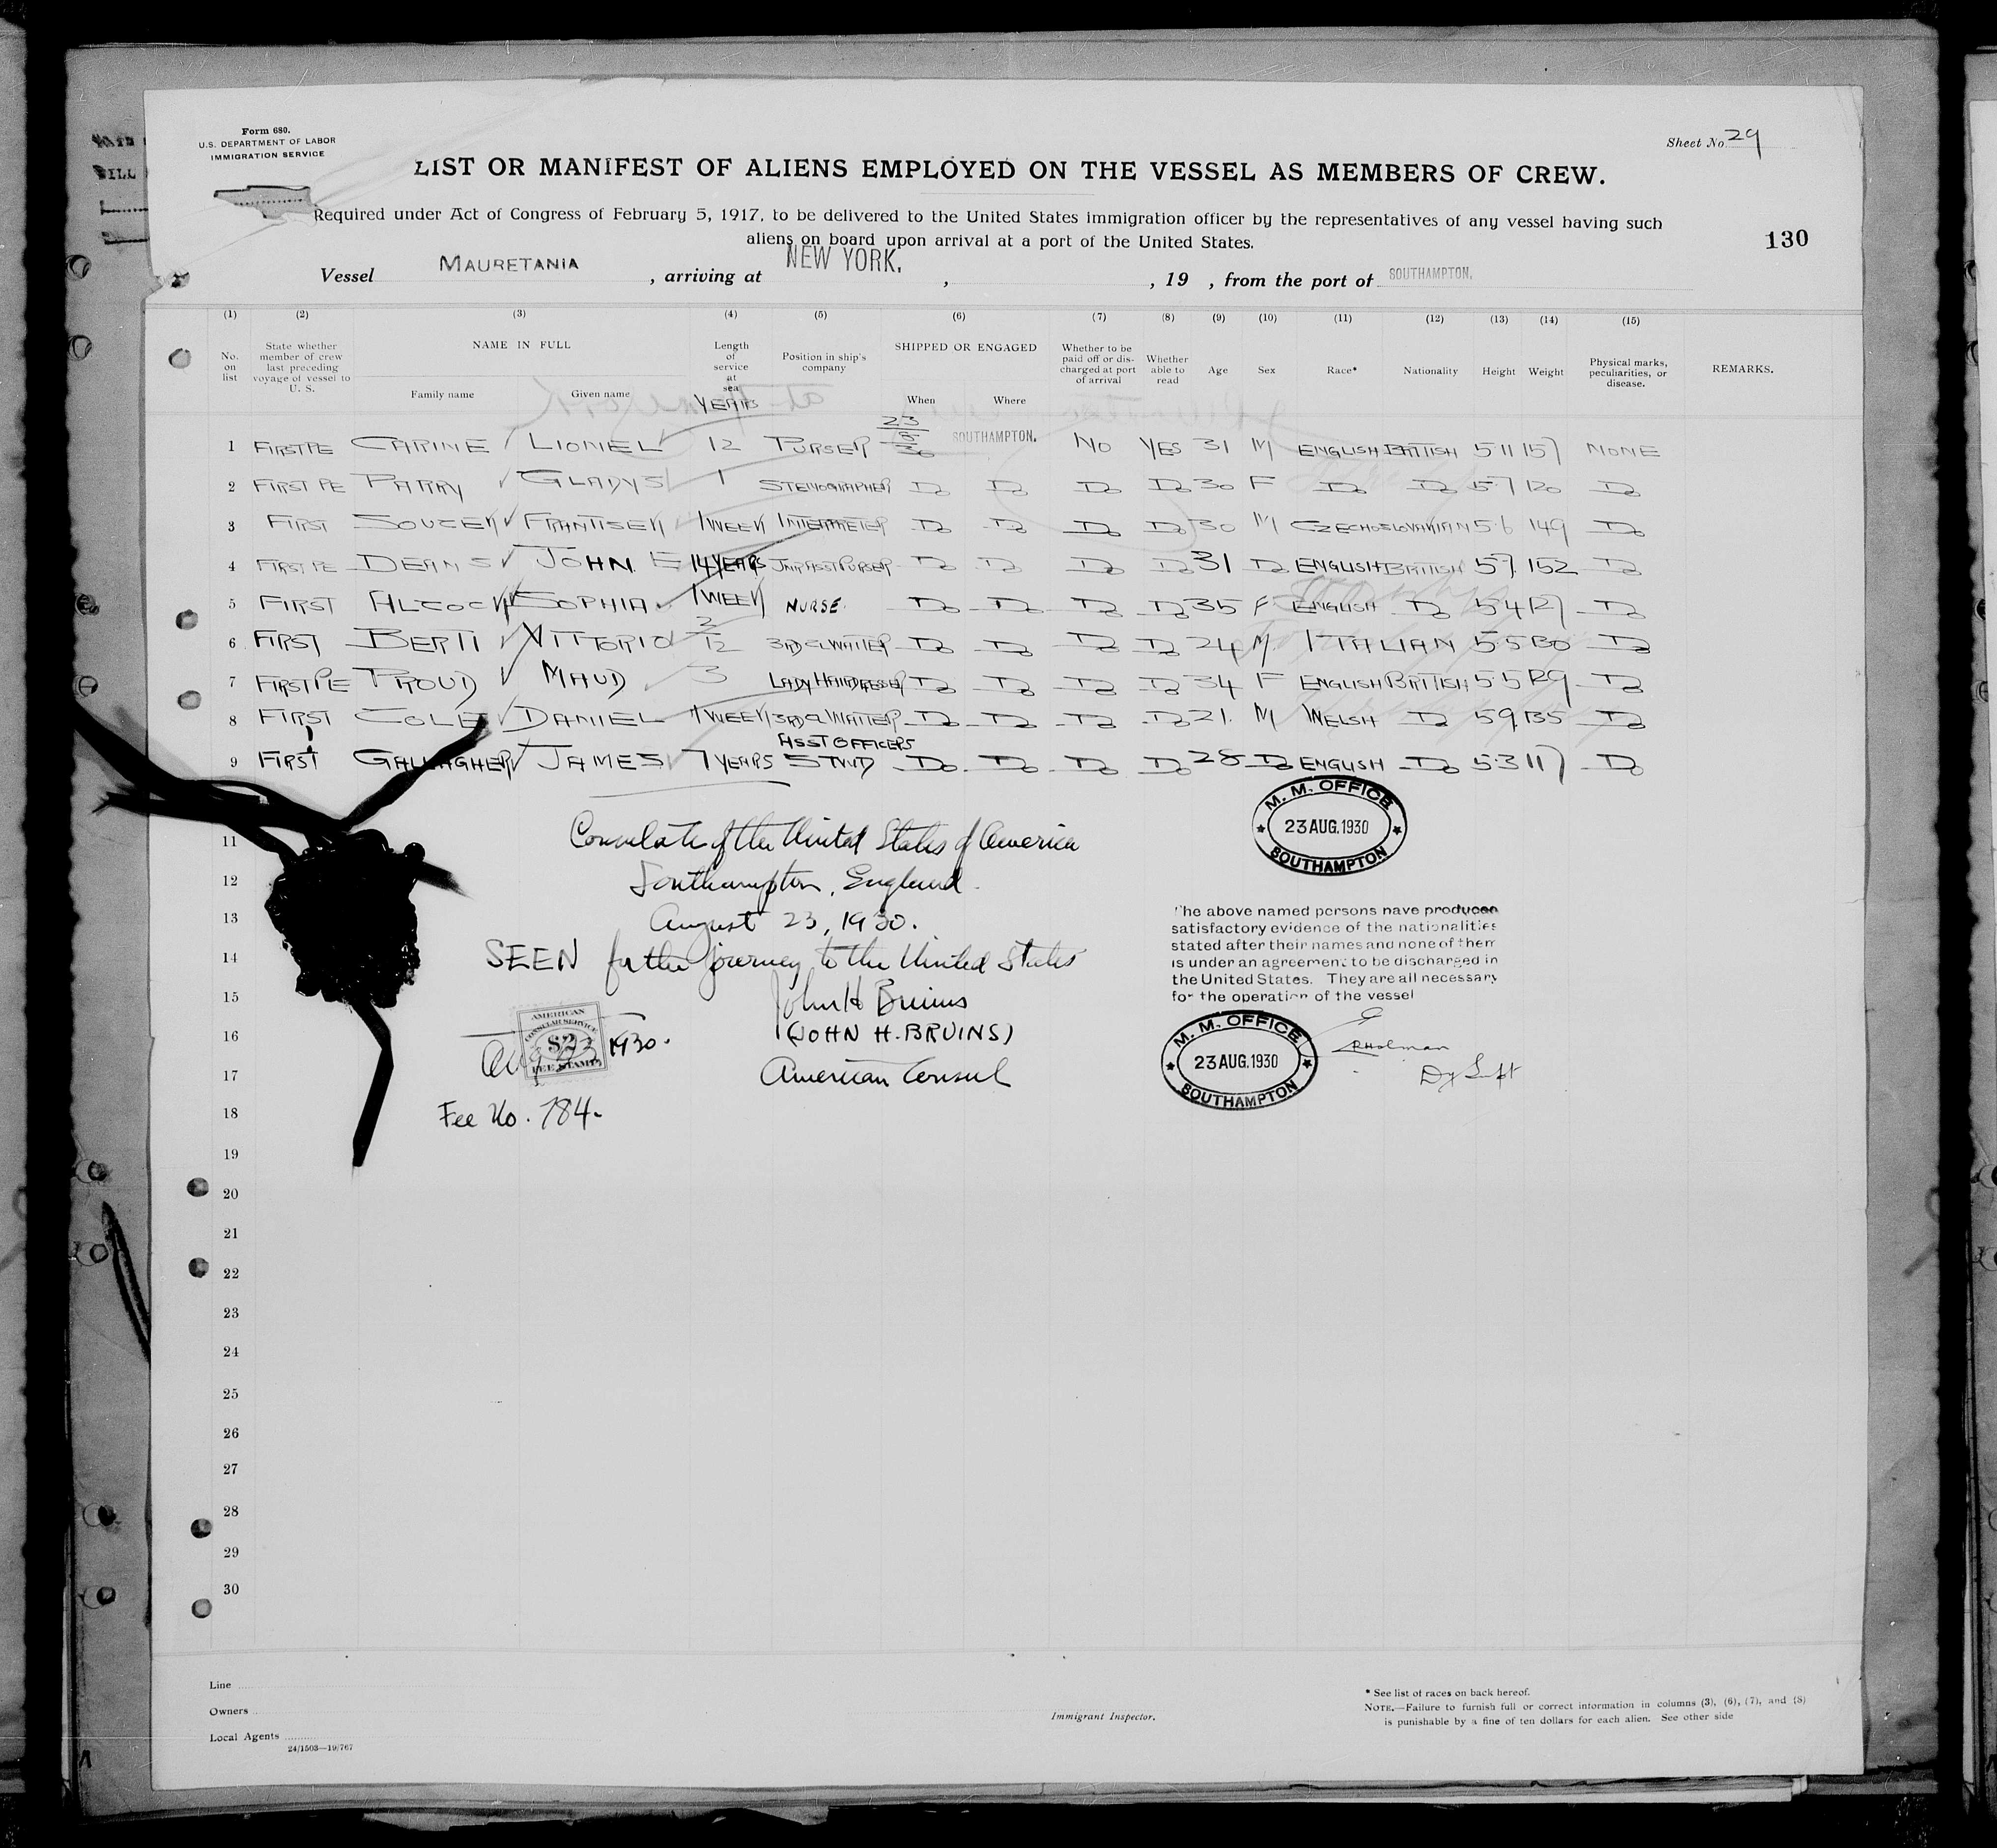 Form 680.
U.S. DEPARTMENT OF LABOR
IMMIGRATION SERVICE
Sheet No. 29
LIST OR MANIFEST OF ALIENS EMPLOYED ON THE VESSEL AS MEMBERS OF CREW.
Required under Act of Congress of February 5, 1917, to be delivered to the United States immigration officer by the representatives of any vessel having such
aliens on board upon arrival at a port of the United States.
130
Vessel MAURETANIA, arriving at NEW YORK, , 19 , from the port of SOUTHAMPTON.
(1) (2) (3) (4) (5) (6) (7) (8) (9) (10) (11) (12) (13) (14) (15)
No. on list State whether member of crew last preceding voyage of vessel to U. S. NAME IN FULL Family name Given name Length of service at sea YEARS Position in ship's company SHIPPED OR ENGAGED When Where Whether to be paid off or discharged at port of arrival Whether able to read Age Sex Race* Nationality Height Weight Physical marks, peculiarities, or disease. REMARKS.
1 FIRST PE CARINE LIONEL 12 PURSER 23/8/30 SOUTHAMPTON. NO YES 31 M ENGLISH BRITISH 5 11 157 NONE
2 FIRST PE PARRY GLADYS 1 STENOGRAPHER Do Do Do Do 30 F Do Do 5.7 120 Do
3 FIRST SOUCEK FRANTISEK 1 WEEK INTERPRETER Do Do Do Do 30 M CZECHOSLOVAKIAN 5.6 149 Do
4 FIRST PE DEANS JOHN E 14 YEARS JNR ASST PURSER Do Do Do Do 31 Do ENGLISH BRITISH 5.7 152 Do
5 FIRST ALCOCK SOPHIA 1 WEEK NURSE. Do Do Do Do 35 F ENGLISH Do 5.4 127 Do
6 FIRST BERTI VITTORIO 2/12 3RD CL WAITER Do Do Do Do 24 M. ITALIAN 5.5 130 Do
7 FIRST PE PROUD MAUD 3 LADY HAIRDRESSER Do Do Do Do 34 F ENGLISH BRITISH 5.5 129 Do
8 FIRST COLE DANIEL 1 WEEK 3RD CL WAITER Do Do Do Do 21. M WELSH Do 5.9 135 Do
9 FIRST GALLAGHER JAMES 7 YEARS ASST OFFICERS STWD Do Do Do Do 28 Do ENGLISH Do 5.3 117 Do
M. M. OFFICE
23 AUG. 1930
SOUTHAMPTON
11 Consulate of the United States of America
12 Southampton, England.
13 August 23, 1930.
14 SEEN for the journey to the United States
The above named persons have produced
satisfactory evidence of the nationalities
stated after their names and none of them
is under an agreement to be discharged in
the United States. They are all necessary
for the operation of the vessel
15 John H Bruins
16 (JOHN H. BRUINS)
AMERICAN
CONSULAR SERVICE
$2
FEE STAMP
Aug 23, 1930.
17 American Consul
M. M. OFFICE
23 AUG. 1930
SOUTHAMPTON
18 Fee No. 784.
19
20
21
22
23
24
25
26
27
28
29
30
Line
Owners
Local Agents
24/1503—19/767
Immigrant Inspector.
* See list of races on back hereof.
NOTE.—Failure to furnish full or correct information in columns (3), (6), (7), and (8)
is punishable by a fine of ten dollars for each alien. See other side